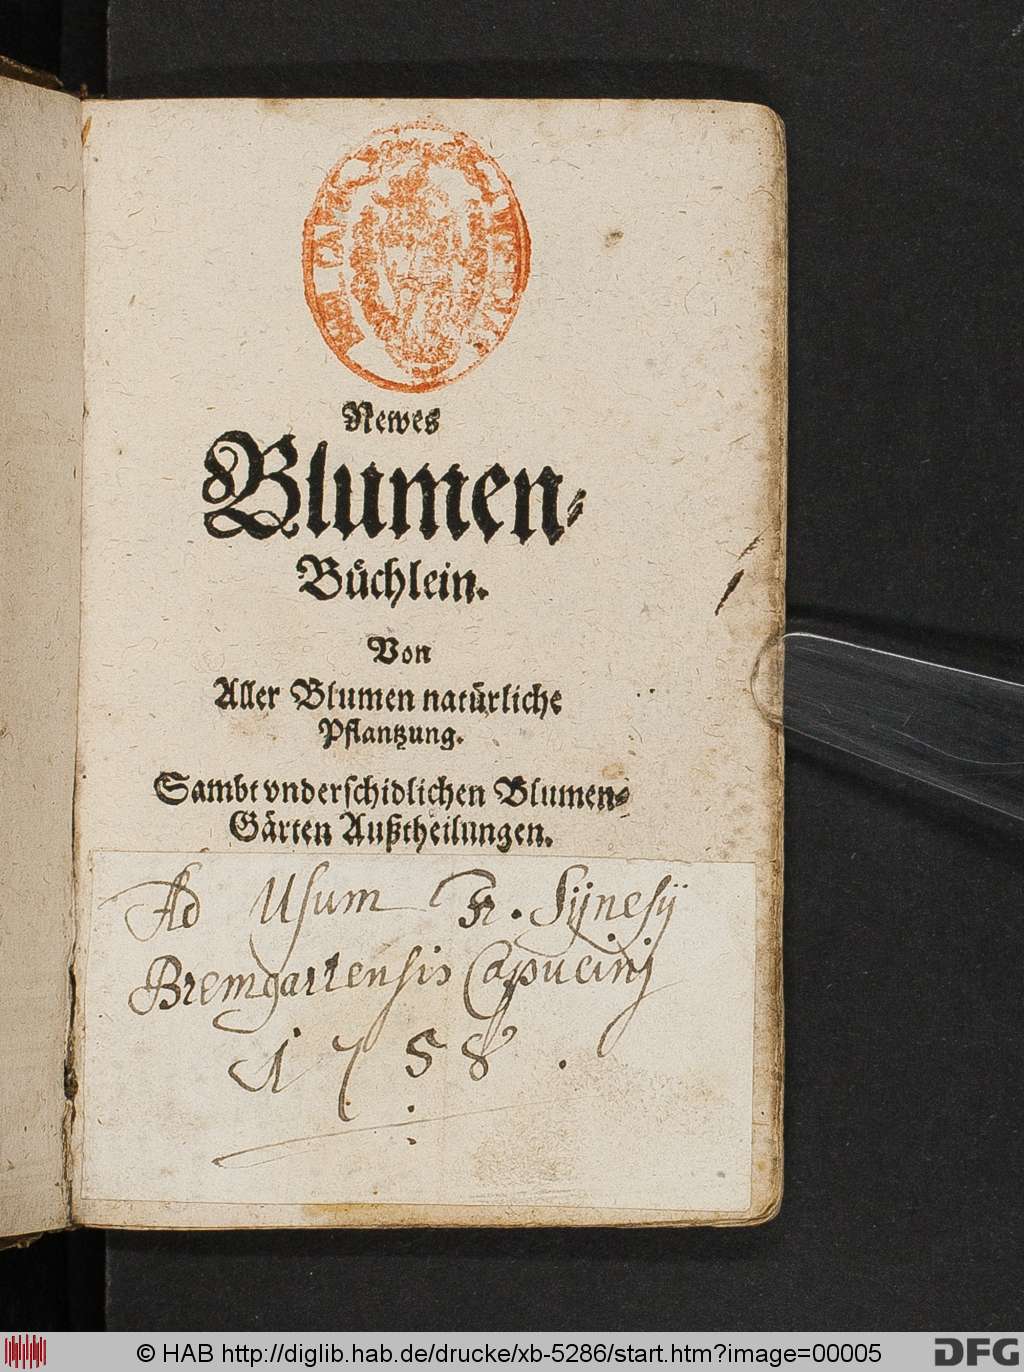 Newes
Blumen-
Büchlein.
Von
Aller Blumen natürliche
Pflantzung.
Sambt vnderschidlichen Blumen-
Gärten Außtheilungen.
Ad Usum Fr. Sÿnesÿ
Bremgartensis Capucinj
1758.
© HAB http://diglib.hab.de/drucke/xb-5286/start.htm?image=00005
DFG